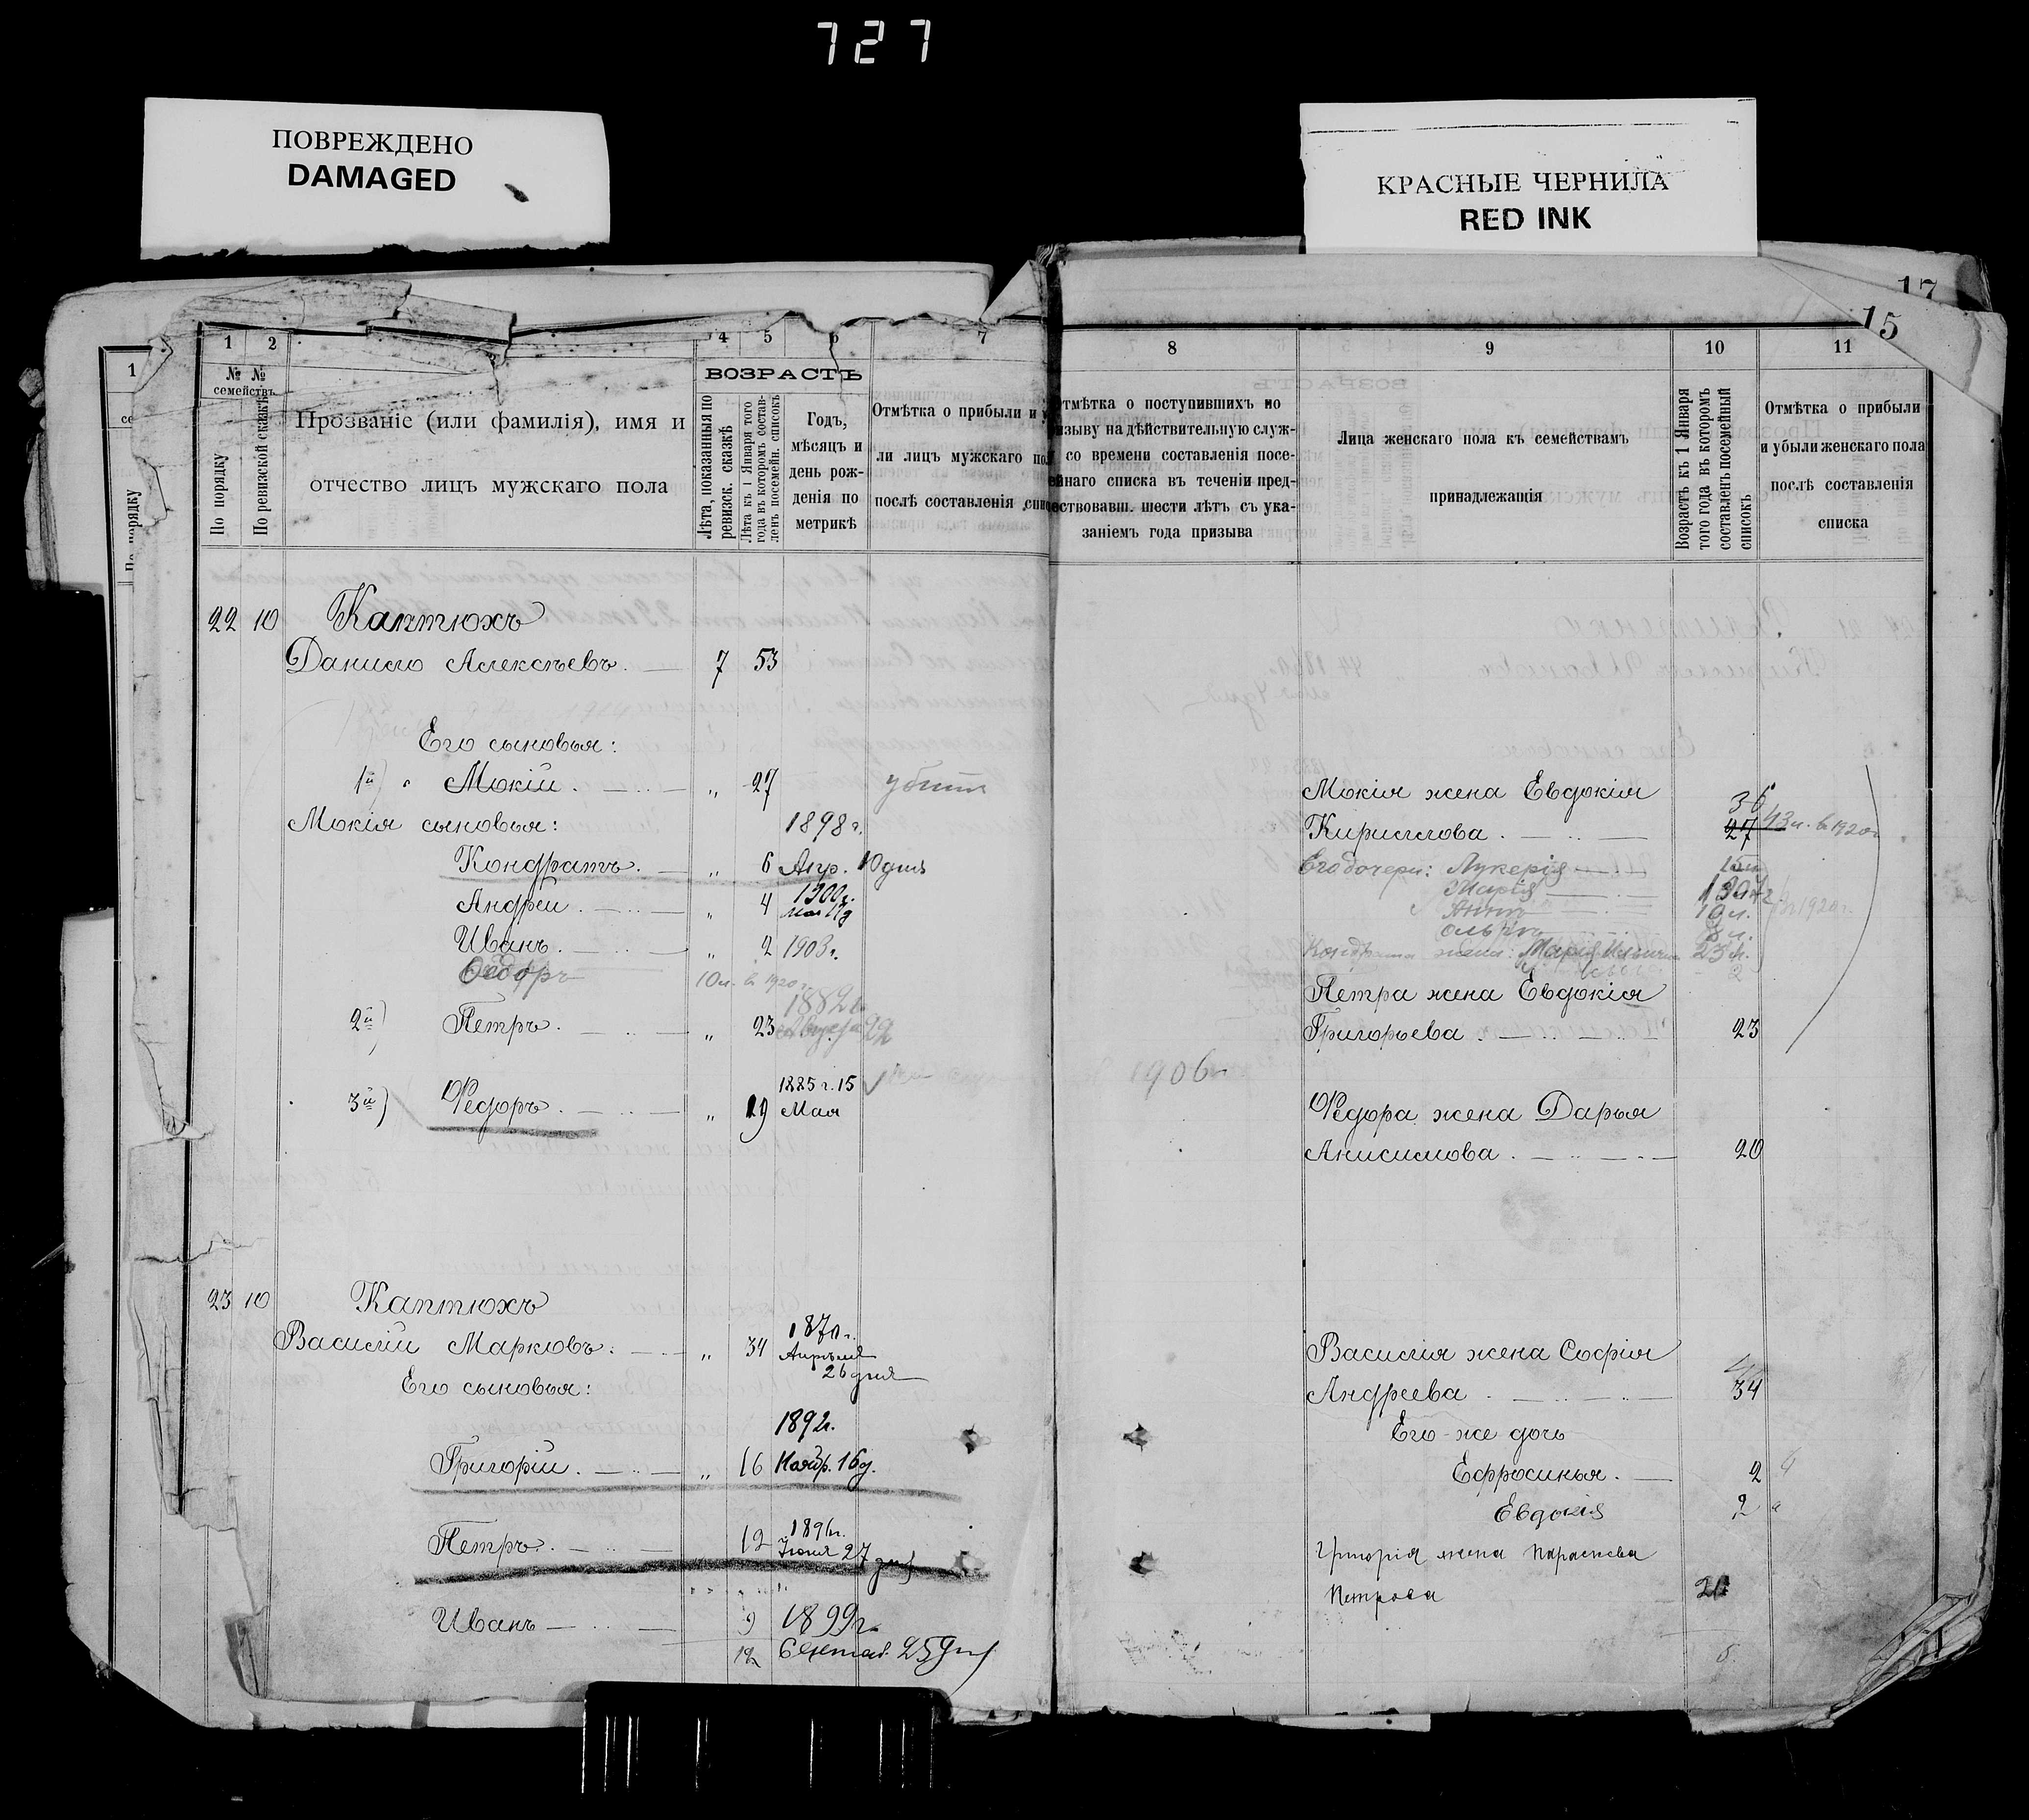 727
ПОВРЕЖДЕНО
DAMAGED
КРАСНЫЕ ЧЕРНИЛА
RED INK
17
15
1
1 2 4 5 6 7
№ № семействъ
По порядку
По ревизской сказкѣ
Прозваніе (или фамилія), имя и
отчество лицъ мужскаго пола
ВОЗРАСТЪ
Лѣта, показанныя по ревизск. сказкѣ
Лѣта къ 1 Января того года въ которомъ составленъ посемейн. списокъ
Годъ,
мѣсяцъ и
день рож-
денія по
метрикѣ
Отмѣтка о прибыли и у
ли лицъ мужскаго пол
послѣ составленія спис
8 9 10 11
отмѣтка о поступившихъ по
изыву на дѣйствительную служ-
со времени составленія посе-
ейнаго списка въ теченіи пред-
ествовавш. шести лѣтъ съ ука-
заніемъ года призыва
Лица женскаго пола къ семействамъ
принадлежащія
Возрастъ къ 1 Января
того года въ которомъ
составленъ посемейный
списокъ
Отмѣтка о прибыли
и убыли женскаго пола
послѣ составленія
списка
22 10 Каптюхъ
Данило Алексѣевъ. 7 53
Его сыновья:
1й) Мокій. „ 27 убитъ
Мокія сыновья: 1898 г.
Кондратъ. „ 6 Апр. 10 дня
Андрей. „ 4 1900 г. мая 17 д
Иванъ. „ 2 1903 г.
Федоръ 10 л. в 1920 г.
1882 г.
2й) Петръ. „ 23 Августа 22
1885 г. 15
3й) Федоръ. „ 19 Мая
1906 г.
Мокія жена Евдокія
36
Кириллова. 27 43 л. в 1920 г.
Его дочери: Лукерія 15 л.
Марія 13 л.
Анна 10 л. в 1920 г.
Ольга 8 л.
Кондрата жена: Марія 23 л.
Петра жена Евдокія
Григорьева. 23
Федора жена Дарья
Анисимова. 20
23 10 Каптюхъ
Василій Марковъ. „ 34 1870 г. Апрѣля 26 дня
Его сыновья:
1892 г.
Григорій. „ 16 Ноябр. 16 д.
Петръ. 12 1896 г. Іюня 27 дня
Иванъ 9 1899 г.
12 Сентяб. 25 дня
Василія жена Софія
Андреева 34
Его-же дочь
Ефросинья. 2 4
Евдокія 2
Григорія жена Параскева
Петрова 20